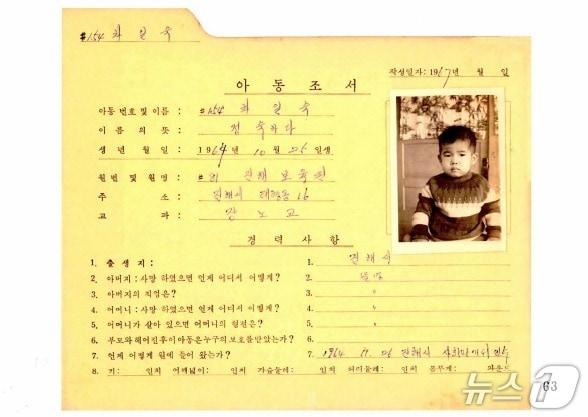 #154 최일숙
작성일자: 1967년 월 일
아동조서
아동 번호 및 이름 : #154 최 일 숙
이 름 의 뜻 : 정숙하다
생 년 월 일 : 1964년 10월 26일생
원번 및 원명 : #81 진해 보육원
주 소 : 진해시 태평동 16
교 파 : 장노교
경력사항
1. 출 생 지 : 1. 진해시
2. 아버지 : 사망 하였으면 언제 어디서 어떻게? 2.
3. 아버지의 직업은? 3. 〃
4. 어머니 : 사망 하였으면 언제 어디서 어떻게? 4. 〃
5. 어머니가 살아 있으면 어머니의 형편은? 5. 〃
6. 부모와헤어진후이아동은누구의보호를받았는가? 6.
7. 언제 어떻게 원에 들어 왔는가? 7. 1964 11. 26 진해시 사회과
8. 키: 인치 어깨넓이: 인치 가슴둘레: 인치 허리둘레: 인치 몸무게: 파운드
63
뉴스1